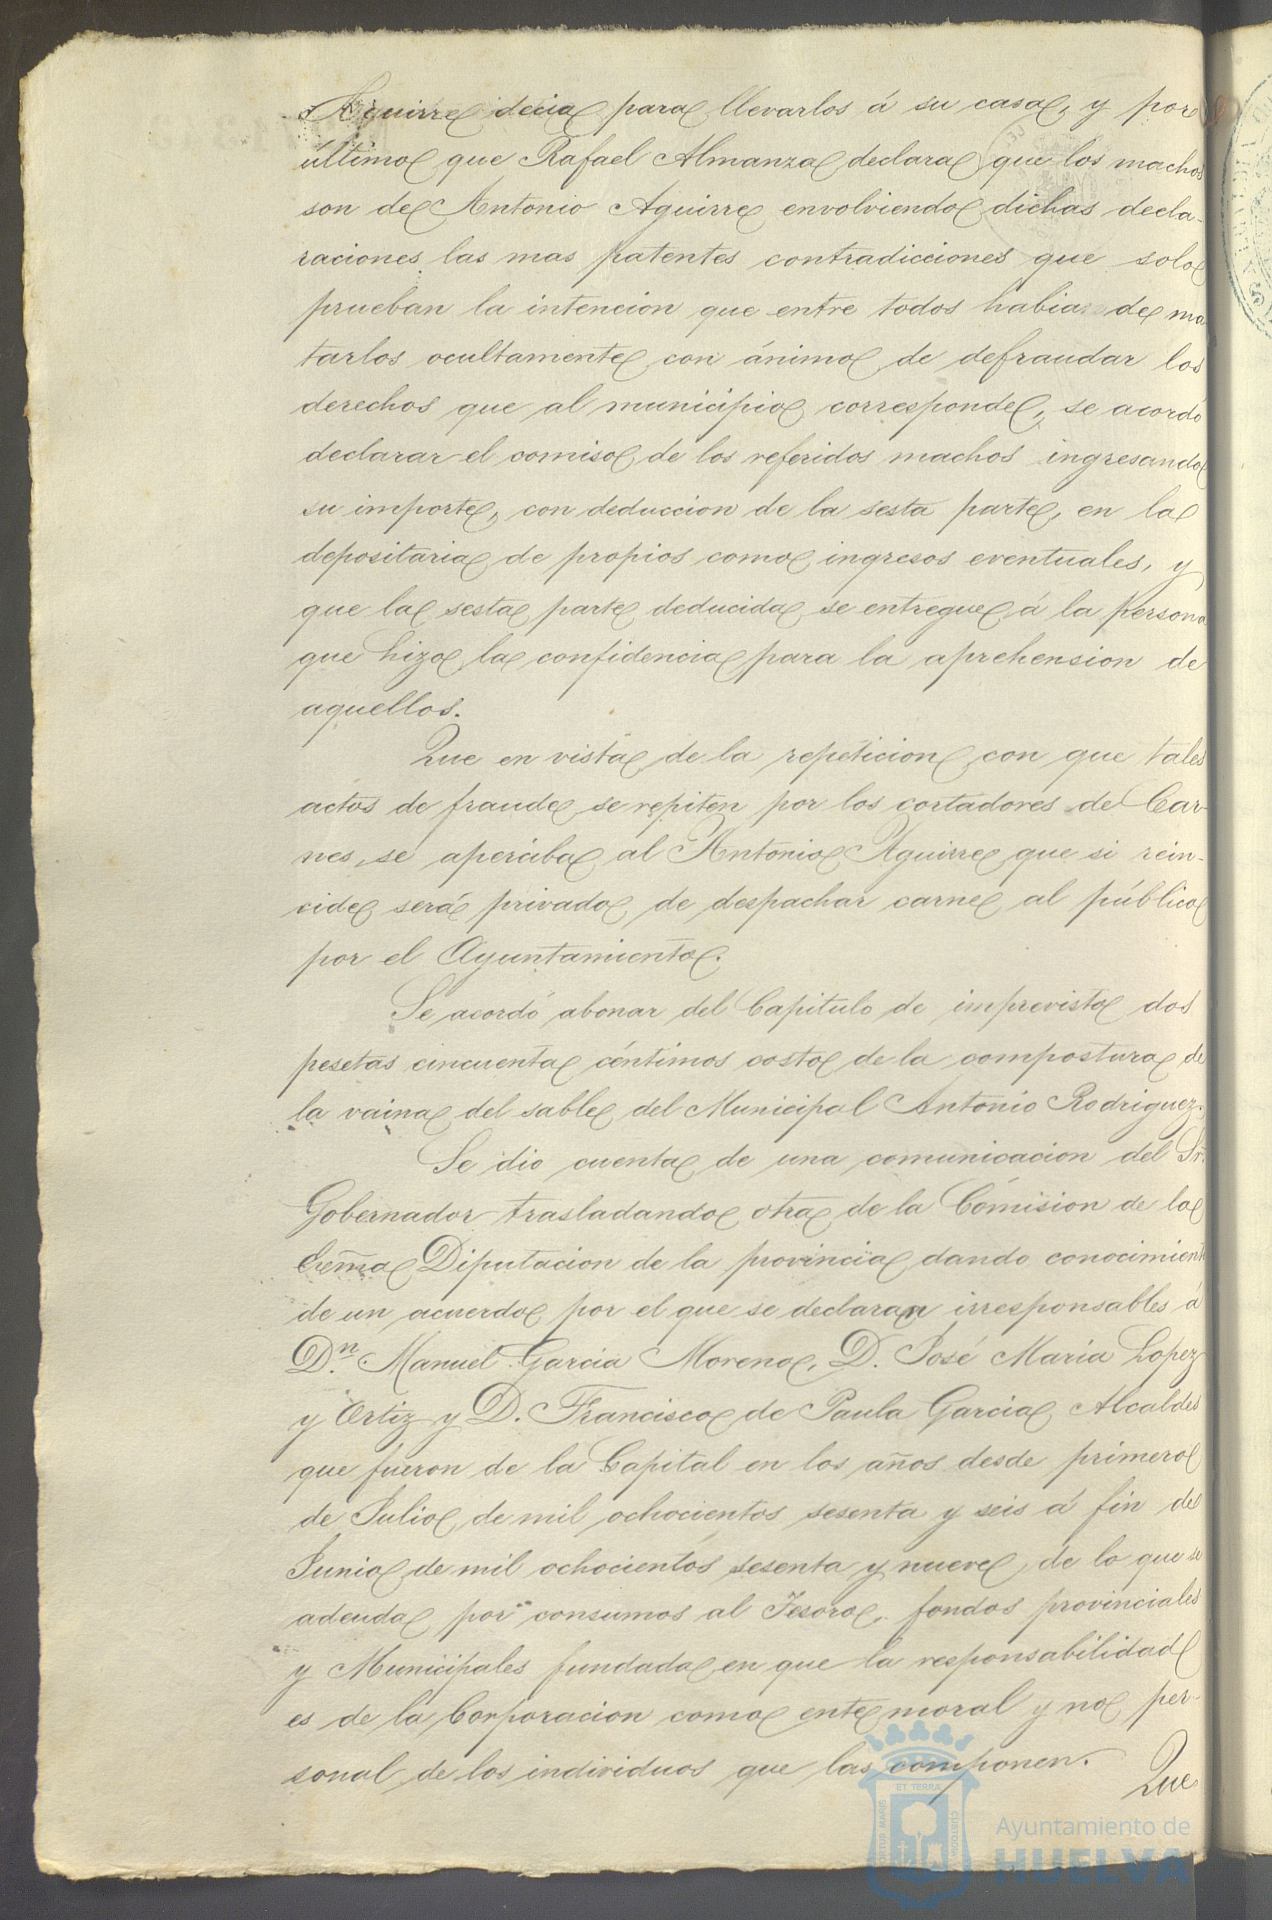 Aguirre decia para llevarlos á su casa, y por
último que Rafael Almanza declara que los machos
son de Antonio Aguirre envolviendo dichas decla-
raciones las mas patentes contradicciones que solo
prueban la intencion que entre todos habia de ma
tarlos ocultamente con ánimo de defraudar los
derechos que al municipio corresponde, se acordó
declarar el comiso de los referidos machos ingresando
su importe, con deduccion de la sesta parte, en la
depositaria de propios como ingresos eventuales, y
que la sesta parte deducida se entregue á la persona
que hizo la confidencia para la aprehension de
aquellos.
Que en vista de la repeticion con que tales
actos de fraude se repiten por los cortadores de Car-
nes, se aperciba al Antonio Aguirre que si rein-
cide será privado de despachar carne al público
por el Ayuntamiento.
Se acordó abonar del Capitulo de imprevisto dos
pesetas cincuenta céntimos costo de la compostura de
la vaina del sable del Municipal Antonio Rodriguez.
Se dio cuenta de una comunicacion del Sr.
Gobernador trasladando otra de la Comision de la
Exma Diputacion de la provincia dando conocimient
de un acuerdo por el que se declaran irresponsables á
Dn. Manuel Garcia Moreno, D. José Maria Lopez
y Ortiz y D. Francisco de Paula Garcia, Alcaldes
que fueron de la Capital en los años desde primero
de Julio de mil ochocientos sesenta y seis á fin de
Junio de mil ochocientos sesenta y nueve, de lo que se
adeuda por consumos al Tesoro, fondos provinciales
y Municipales fundada en que la responsabilidad
es de la Corporacion como ente moral y no per-
sonal de los individuos que las componen.
Que
Ayuntamiento de
HUELVA